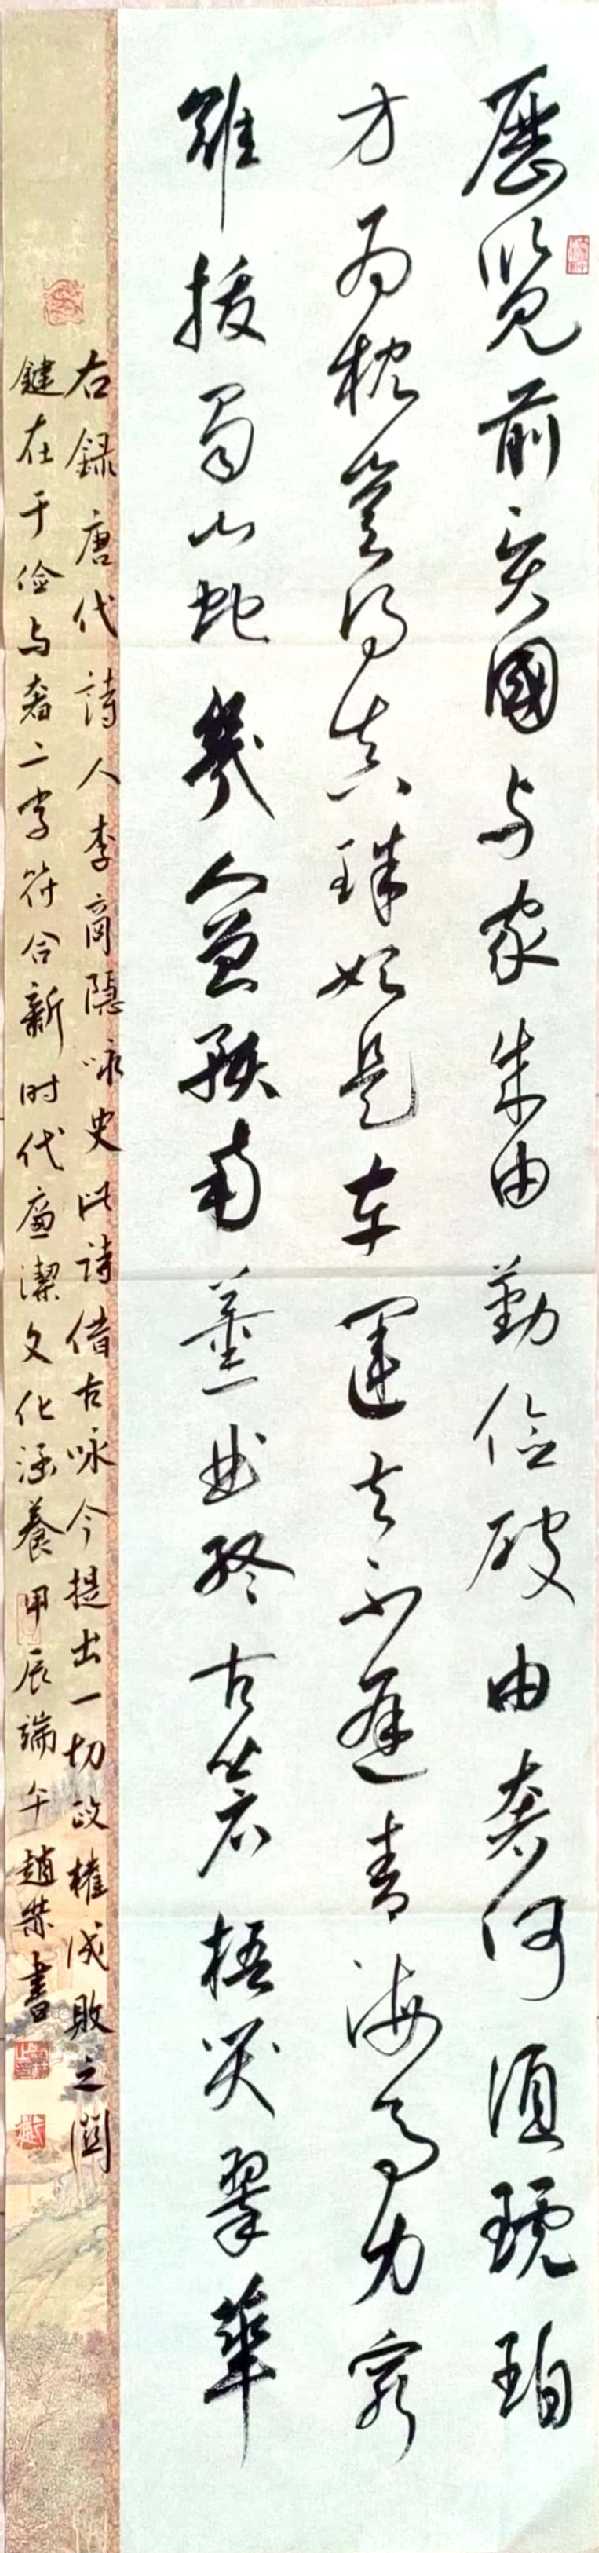 歷览前贤國与家成由勤俭破由奢何須琥珀
方为枕豈得真珠始是車運去不逢青海马力窮
難拔蜀山蛇幾人曾預南薰曲终古苍梧哭翠華
右録唐代詩人李商隱咏史此詩借古咏今提出一切政權成敗之関
鍵在于儉与奢二字符合新时代廉潔文化涵養甲辰端午趙書